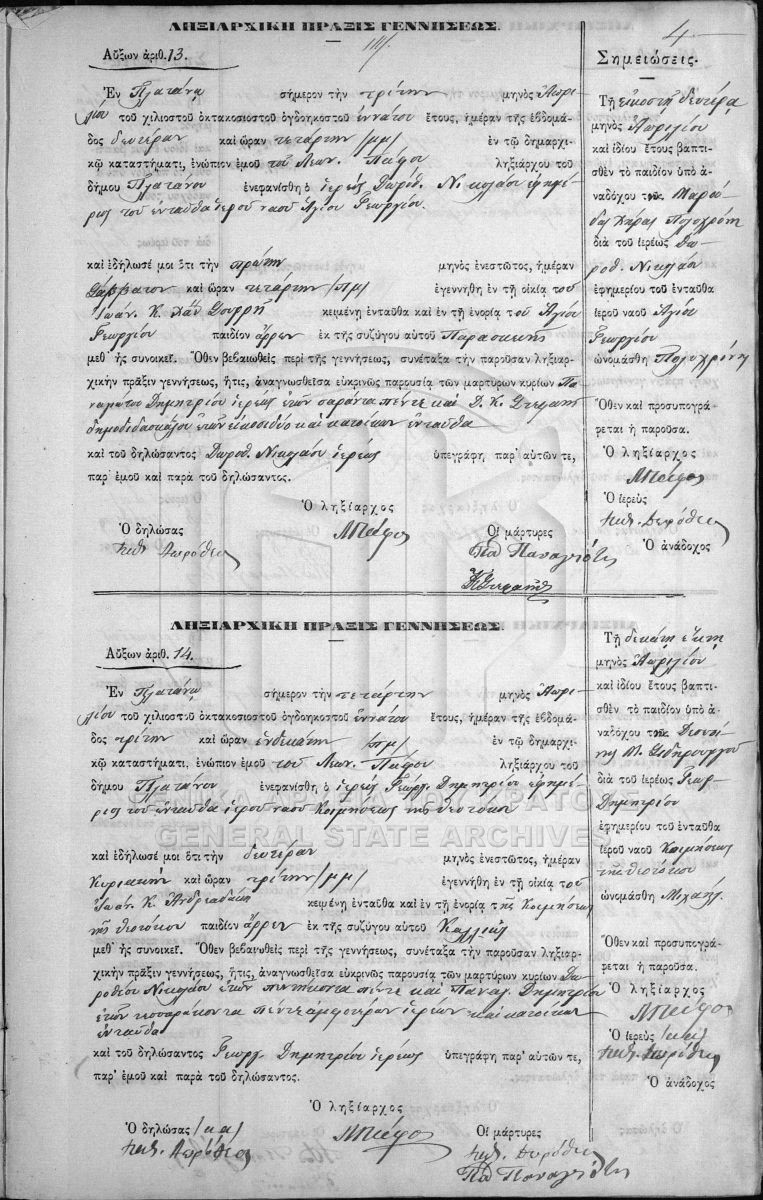 4
ΛΗΞΙΑΡΧΙΚΗ ΠΡΑΞΙΣ ΓΕΝΝΗΣΕΩΣ.
Αὔξων ἀριθ. 13.
Ἐν Πλατάνῳ σήμερον τὴν τρίτην μηνὸς Ἀπρι
λίου τοῦ χιλιοστοῦ ὀκτακοσιοστοῦ ὀγδοηκοστοῦ ἐννάτου ἔτους, ἡμέραν τῆς ἑβδομά-
δος δευτέραν καὶ ὥραν τετάρτην /μμ/ ἐν τῷ δημαρχι-
κῷ καταστήματι, ἐνώπιον ἐμοῦ τοῦ ληξιάρχου τοῦ
δήμου Πλατάνου ἐνεφανίσθη ὁ ἱερεὺς Δωρόθ. Νικολάου ἐφημέ
ριος τοῦ ἐνταῦθα ἱεροῦ ναοῦ Ἁγίου Γεωργίου.
καὶ ἐδήλωσέ μοι ὅτι τὴν πρώτην μηνὸς ἐνεστῶτος, ἡμέραν
Σάββατον καὶ ὥραν τετάρτην /πμ/ ἐγεννήθη ἐν τῇ οἰκίᾳ τοῦ
Ἰωάν. Κ. κειμένῃ ἐνταῦθα καὶ ἐν τῇ ἐνορίᾳ τοῦ Ἁγίου
Γεωργίου παιδίον ἄρρεν ἐκ τῆς συζύγου αὐτοῦ Παρασκευῆς
μεθ᾽ ἧς συνοικεῖ. Ὅθεν βεβαιωθεὶς περὶ τῆς γεννήσεως, συνέταξα τὴν παροῦσαν ληξιαρ-
χικὴν πρᾶξιν γεννήσεως, ἥτις, ἀναγνωσθεῖσα εὐκρινῶς παρουσίᾳ τῶν μαρτύρων κυρίων Πα
ναγιώτου Δημητρίου ἱερέως ἐτῶν σαράντα πέντε καὶ Δ. Κ.
δημοδιδασκάλου ἐτῶν εἰκοσιδύο καὶ κατοίκων ἐνταῦθα
καὶ τοῦ δηλώσαντος Δωροθ. Νικολάου ἱερέως ὑπεγράφη παρ᾽ αὐτῶν τε,
παρ᾽ ἐμοῦ καὶ παρὰ τοῦ δηλώσαντος.
Ὁ ληξίαρχος
Ὁ δηλώσας Οἱ μάρτυρες
Σημειώσεις.
Τῇ εἰκοστῇ δευτέρᾳ
μηνὸς Ἀπριλίου
καὶ ἰδίου ἔτους βαπτι-
σθὲν τὸ παιδίον ὑπὸ ἀ-
ναδόχου τῆς
χήρας Πολυχρόνη
διὰ τοῦ ἱερέως Δω-
ροθ. Νικολάου
ἐφημερίου τοῦ ἐνταῦθα
ἱεροῦ ναοῦ Ἁγίου
Γεωργίου
ὠνομάσθη Πολυχρόνης
Ὅθεν καὶ προσυπογρά-
φεται ἡ παροῦσα.
Ὁ ληξίαρχος
Ὁ ἱερεὺς
Ὁ ἀνάδοχος
ΛΗΞΙΑΡΧΙΚΗ ΠΡΑΞΙΣ ΓΕΝΝΗΣΕΩΣ.
Αὔξων ἀριθ. 14.
Ἐν Πλατάνῳ σήμερον τὴν τετάρτην μηνὸς Ἀπρι-
λίου τοῦ χιλιοστοῦ ὀκτακοσιοστοῦ ὀγδοηκοστοῦ ἐννάτου ἔτους, ἡμέραν τῆς ἑβδομά-
δος τρίτην καὶ ὥραν ἑνδεκάτην /πμ/ ἐν τῷ δημαρχι-
κῷ καταστήματι, ἐνώπιον ἐμοῦ τοῦ ληξιάρχου τοῦ
δήμου Πλατάνου ἐνεφανίσθη ὁ ἱερεὺς Γεώργ. Δημητρίου ἐφημέ-
ριος τοῦ ἐνταῦθα ἱεροῦ ναοῦ Κοιμήσεως τῆς Θεοτόκου
καὶ ἐδήλωσέ μοι ὅτι τὴν δευτέραν μηνὸς ἐνεστῶτος, ἡμέραν
Κυριακὴν καὶ ὥραν τρίτην /μμ/ ἐγεννήθη ἐν τῇ οἰκίᾳ τοῦ
Ἰωάν. Κ. Ἀνδρεαδάκη κειμένῃ ἐνταῦθα καὶ ἐν τῇ ἐνορίᾳ τῆς Κοιμήσεως
τῆς Θεοτόκου παιδίον ἄρρεν ἐκ τῆς συζύγου αὐτοῦ
μεθ᾽ ἧς συνοικεῖ. Ὅθεν βεβαιωθεὶς περὶ τῆς γεννήσεως, συνέταξα τὴν παροῦσαν ληξιαρ-
χικὴν πρᾶξιν γεννήσεως, ἥτις, ἀναγνωσθεῖσα εὐκρινῶς παρουσίᾳ τῶν μαρτύρων κυρίων Δω
ροθέου Νικολάου ἐτῶν πεντήκοντα πέντε καὶ Παναγ. Δημητρίου
ἐτῶν τεσσαράκοντα πέντε ἀμφοτέρων ἱερέων καὶ κατοίκων
ἐνταῦθα
καὶ τοῦ δηλώσαντος Γεωργ. Δημητρίου ἱερέως ὑπεγράφη παρ᾽ αὐτῶν τε,
παρ᾽ ἐμοῦ καὶ παρὰ τοῦ δηλώσαντος.
Ὁ ληξίαρχος
Ὁ δηλώσας Οἱ μάρτυρες
Τῇ δεκάτῃ ἕκτῃ
μηνὸς Ἀπριλίου
καὶ ἰδίου ἔτους βαπτι-
σθὲν τὸ παιδίον ὑπὸ ἀ-
ναδόχου τῆς
διὰ τοῦ ἱερέως Γεωρ
Δημητρίου
ἐφημερίου τοῦ ἐνταῦθα
ἱεροῦ ναοῦ Κοιμήσεως
τῆς Θεοτόκου
ὠνομάσθη Μιχαήλ.
Ὅθεν καὶ προσυπογρά-
φεται ἡ παροῦσα.
Ὁ ληξίαρχος
Ὁ ἱερεὺς
Ὁ ἀνάδοχος
GENERAL STATE ARCHIVES